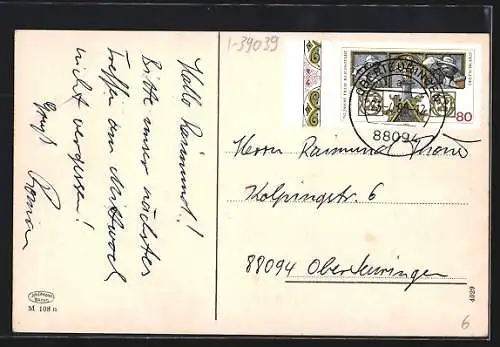 1-39039
Hallo Raimund!
Bitte unser nächstes
Treffen am Mittwoch
nicht vergessen!
Gruß
Roman
Herrn Raimund
Kolpingstr. 6
88094 Oberteuringen
OBERTEURINGEN
88094
80
M 108 n
4029
6